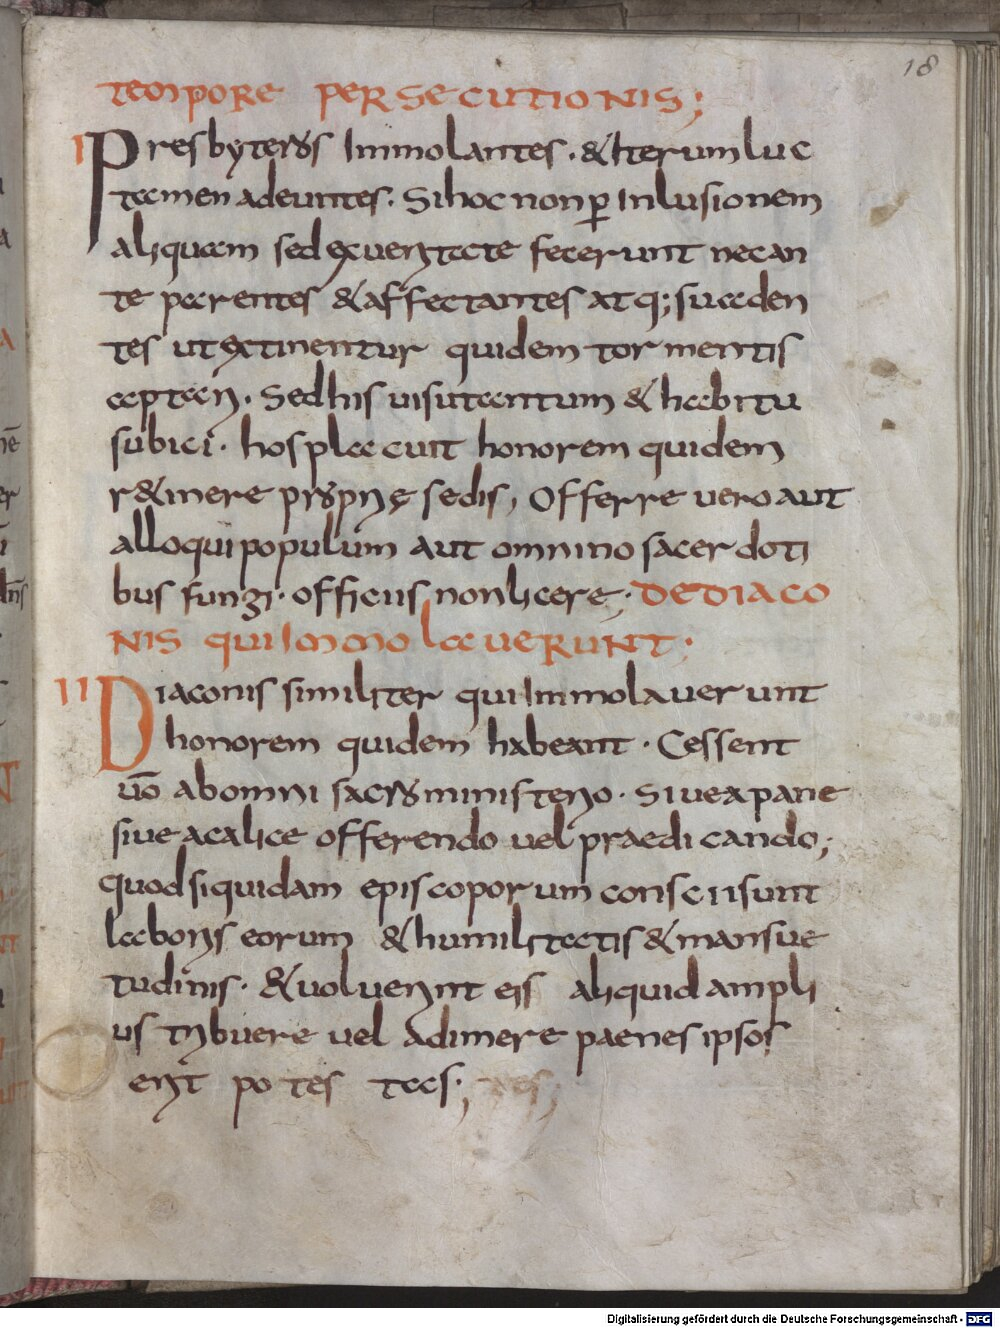 18
tempore persecutionis;
I Presbyteros Immolantes. & Iterum luc
tamen adeuntes. Si hoc non p̱ Inlusionem
aliquam sed ex ueritate fecerunt necan
te parentes & affectantes atq; suaden
tes ut extinentur quidem tormentis
aptari. Sed his uisu tantum & habitu
subici. hos placuit honorem quidem
r&inere proprię sedis, Offerre uero aut
alloqui populum aut omnino sacerdoti
bus fungi. officiis non licere; DE DIACO
NIS QUI Immolauerunt;
II Diaconis similiter qui Immolauerunt
honorem quidem habeant. Cessent
uō ab omni sacro ministerio. Siue a pane
siue a calice offerendo uel praedicando;
quod si quidam episcoporum conscii sunt
laboris eorum & humilitatis & mansue
tudinis. & uoluerint eis aliquid ampli
us tribuere uel adimere paenes ipsos
erit potestas;
Digitalisierung gefördert durch die Deutsche Forschungsgemeinschaft - DFG